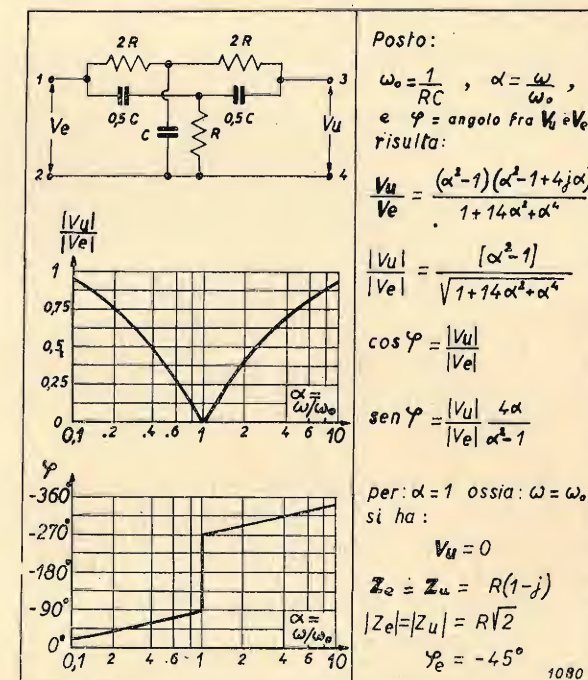 2R 2R
1 3
0,5C 0,5C
Ve C R Vu
2 4
|Vu|
|Ve|
1
0,75
0,5
0,25
0
α =
ω/ω₀
0,1 .2 .4 .6 1 2 4 6 10
φ
-360°
-270°
-180°
-90°
0°
α =
ω/ω₀
0,1 .2 .4 .6 1 2 4 6 10
Posto:
ω₀ = 1/RC , α = ω/ω₀ ,
e φ = angolo fra Vu e Ve
risulta:
Vu/Ve = (α²-1)(α²-1+4jα) / 1+14α²+α⁴
|Vu|/|Ve| = [α²-1] / √1+14α²+α⁴
cos φ = |Vu|/|Ve|
sen φ = |Vu|/|Ve| 4α/α²-1
per: α = 1 ossia: ω = ω₀
si ha:
Vu = 0
Ze = Zu = R(1-j)
|Ze| = |Zu| = R√2
φe = -45°
1080